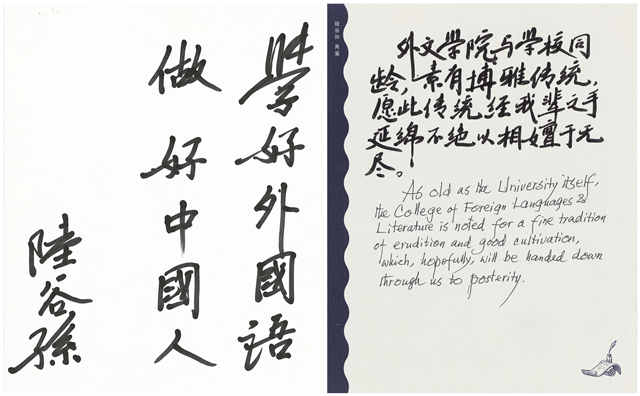 學好外國語
做好中國人
陸谷孫
外文學院与學校同
龄，素有博雅传统，
愿此传统经我辈之手
延绵不绝以相嬗于无
尽。
As old as the University itself,
the College of Foreign Languages &
Literature is noted for a fine tradition
of erudition and good cultivation,
which, hopefully, will be handed down
through us to posterity.